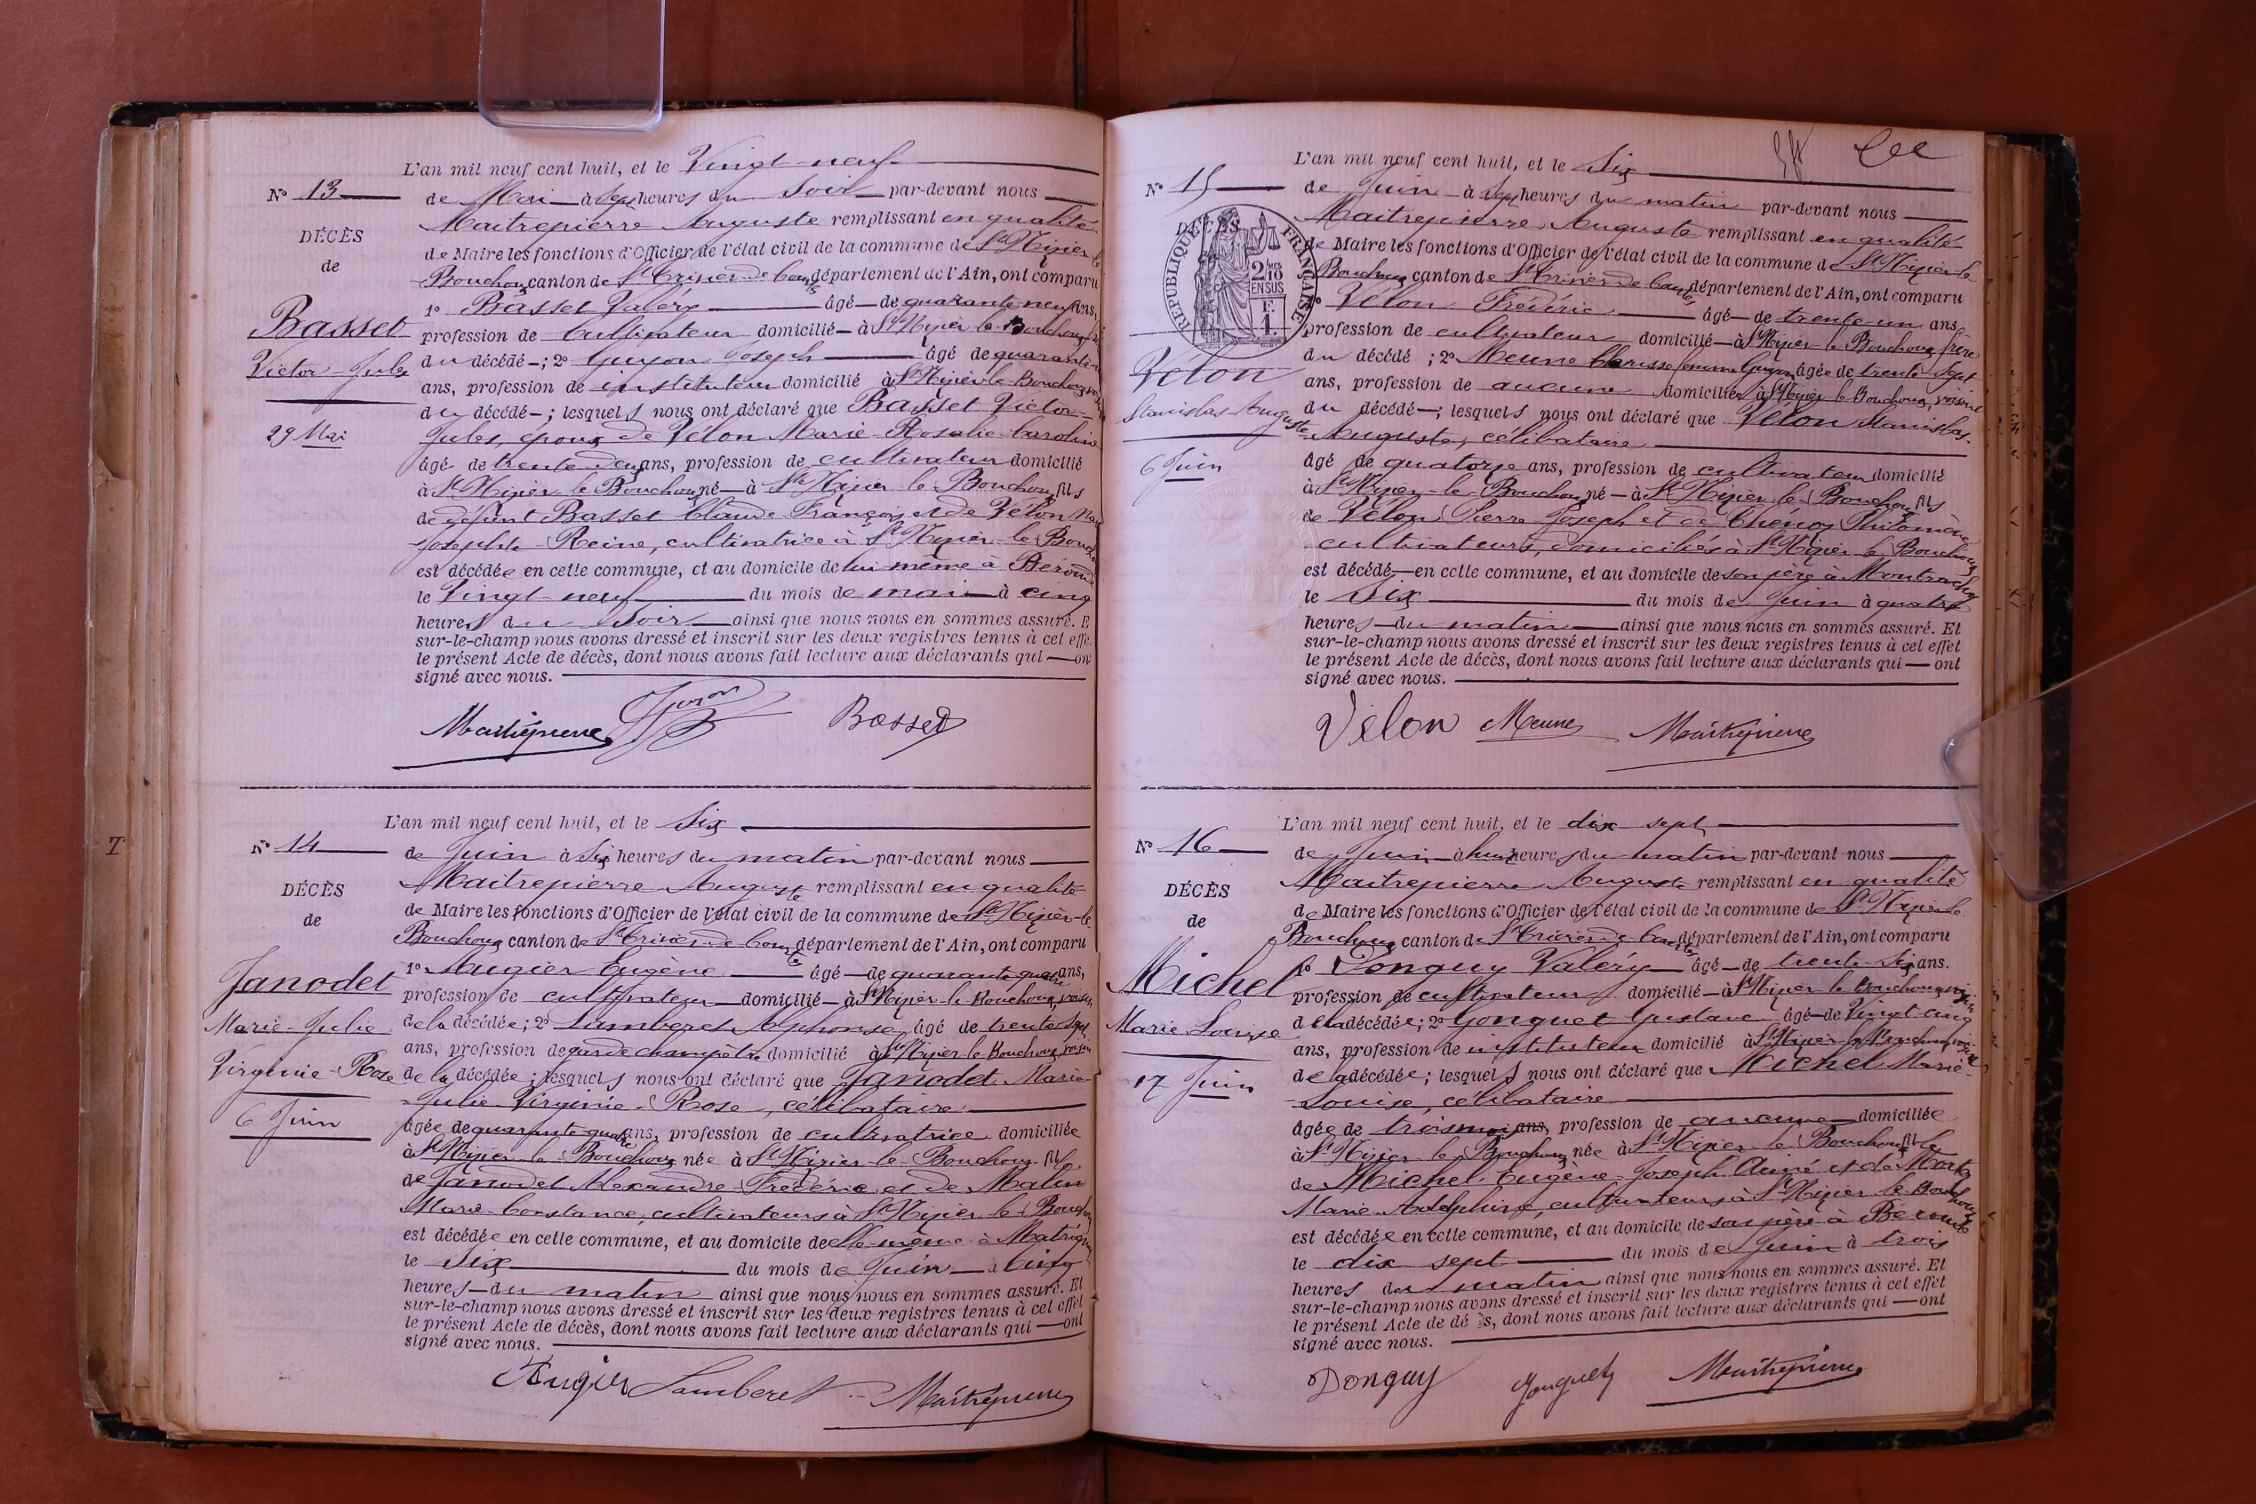 L'an mil neuf cent huit, et le Vingt-neuf
N° 13
de Mai à Sept heures du Soir par-devant nous
DÉCÈS
Maitrepierre Auguste remplissant en qualité
de
de Maire les fonctions d'Officier de l'état civil de la commune de St Nizier-le
Bouchoux canton de St Trivier-de-Courtes département de l'Ain, ont comparu
1° Basset Valéry âgé de quarante neuf ans,
Basset
profession de Cultivateur domicilié à St Nizier-le-Bouchoux
Victor-Jules
du décédé ; 2° Guyon Joseph âgé de quarante
ans, profession de instituteur domicilié à St Nizier-le-Bouchoux
du décédé ; lesquels nous ont déclaré que Basset Victor-
29 Mai
Jules, époux de Vélon Marie-Rosalie-Caroline
âgé de trente deux ans, profession de cultivateur domicilié
à St Nizier-le-Bouchoux né à St Nizier-le-Bouchoux fils
de défunt Basset Claude François et de Vélon
Josephte-Reine, cultivatrice à St Nizier-le-Bouchoux
est décédée en cette commune, et au domicile de lui-même à
le Vingt-neuf du mois de mai à cinq
heures du Soir ainsi que nous nous en sommes assuré. Et
sur-le-champ nous avons dressé et inscrit sur les deux registres tenus à cet effet
le présent Acte de décès, dont nous avons fait lecture aux déclarants qui ont
signé avec nous.
Maitrepierre Guyon Basset
L'an mil neuf cent huit, et le Six
N° 14
de Juin à Six heures du matin par-devant nous
DÉCÈS
Maitrepierre Auguste remplissant en qualité
de
de Maire les fonctions d'Officier de l'état civil de la commune de St Nizier-le
Bouchoux canton de St Trivier-de-Courtes département de l'Ain, ont comparu
1° Augier Eugène âgé de quarante quatre ans,
Janodet
profession de cultivateur domicilié à St Nizier-le-Bouchoux, voisin
Marie-Julie
de la décédée ; 2° Lamberet Alphonse, âgé de trente sept
ans, profession de garde champêtre domicilié à St Nizier-le-Bouchoux, voisin
Virginie-Rose
de la décédée ; lesquels nous ont déclaré que Janodet Marie-
Julie-Virginie-Rose, célibataire
6 Juin
âgée de quarante quatre ans, profession de cultivatrice domiciliée
à St Nizier-le-Bouchoux née à St Nizier-le-Bouchoux fille
de Janodet Alexandre Frédéric et de
Marie-Constance, cultivateurs à St Nizier-le-Bouchoux
est décédée en cette commune, et au domicile de elle-même à
le Six du mois de Juin à Cinq
heures du matin ainsi que nous nous en sommes assuré. Et
sur-le-champ nous avons dressé et inscrit sur les deux registres tenus à cet effet
le présent Acte de décès, dont nous avons fait lecture aux déclarants qui ont
signé avec nous.
Augier Lamberet Maitrepierre
L'an mil neuf cent huit, et le Six
N° 15
de Juin à Sept heures du matin par-devant nous
DÉCÈS
Maitrepierre Auguste remplissant en qualité
de Maire les fonctions d'Officier de l'état civil de la commune de St Nizier-le
RÉPUBLIQUE FRANÇAISE
2/10 EN SUS
Bouchoux canton de St Trivier-de-Courtes département de l'Ain, ont comparu
1° Vélon Frédéric âgé de trente-un ans
profession de cultivateur domicilié à St Nizier-le-Bouchoux, frère
Vélon
du décédé ; 2° Meune Clarisse femme Guyon âgée de trente-sept
ans, profession de aucune domiciliée à St Nizier-le-Bouchoux, voisine
Stanislas Auguste
du décédé ; lesquels nous ont déclaré que Vélon Stanislas-
Auguste, célibataire
6 Juin
âgé de quatorze ans, profession de cultivateur domicilié
à St Nizier-le-Bouchoux né à St Nizier-le-Bouchoux fils
de Vélon Pierre Joseph et de Philomène
cultivateurs, domiciliés à St Nizier-le-Bouchoux
est décédé en cette commune, et au domicile de son père à
le Six du mois de Juin à quatre
heures du matin ainsi que nous nous en sommes assuré. Et
sur-le-champ nous avons dressé et inscrit sur les deux registres tenus à cet effet
le présent Acte de décès, dont nous avons fait lecture aux déclarants qui ont
signé avec nous.
Vélon Meune Maitrepierre
L'an mil neuf cent huit, et le dix sept
N° 16
de Juin à huit heures du matin par-devant nous
DÉCÈS
Maitrepierre Auguste remplissant en qualité
de
de Maire les fonctions d'Officier de l'état civil de la commune de St Nizier-le
Bouchoux canton de St Trivier-de-Courtes département de l'Ain, ont comparu
Michel
1° Donguy Valéry âgé de trente-six ans.
profession de cultivateur domicilié à St Nizier-le-Bouchoux voisin
Marie Louise
de la décédée ; 2° Gonguet Gustave âgé de Vingt cinq
ans, profession de instituteur domicilié à St Nizier-le-Bouchoux voisin
17 Juin
de la décédée ; lesquels nous ont déclaré que Michel Marie-
Louise, célibataire
âgée de trois mois ans, profession de aucune domiciliée
à St Nizier-le-Bouchoux née à St Nizier-le-Bouchoux fille
de Michel Eugène-Joseph Aimé et de
Marie-Adelphine, cultivateurs à St Nizier-le-Bouchoux
est décédée en cette commune, et au domicile de son père à
le dix sept du mois de Juin à trois
heures du matin ainsi que nous nous en sommes assuré. Et
sur-le-champ nous avons dressé et inscrit sur les deux registres tenus à cet effet
le présent Acte de décès, dont nous avons fait lecture aux déclarants qui ont
signé avec nous.
Donguy Gonguet Maitrepierre